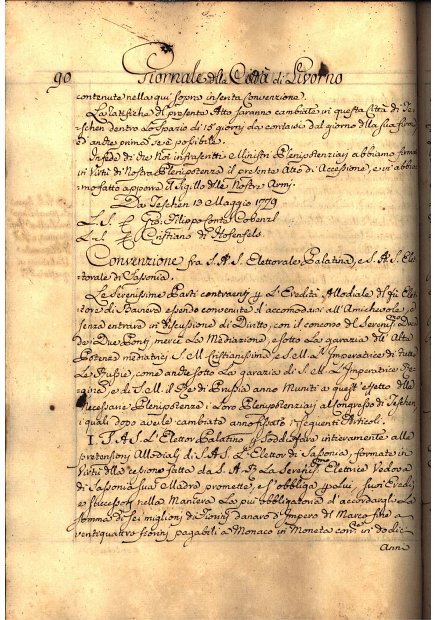 90 Giornale della Città di Livorno
contenute nella qui sopra inserta Convenzione.
La ratifiche del presente Atto saranno cambiate in questa Città di Te-
schen dentro lo spazio di 15 giorni da contarsi dal giorno della sua firma,
ed anche prima se è possibile.
In fede di che Noi infrascritti Ministri Plenipotenziarj abbiamo firmato
in Virtù di Nostra Plenipotenza il presente Atto di Accessione, e vi abbia-
mo fatto apporre il Sigillo delle Nostre Armi.
Da Teschen 13 Maggio 1779
L. S. Gio. Filippo Conte Cobenzl
L. S. Cristiano di Hofenfels.
Convenzione fra S. A. S. Elettorale Palatina, e S. A. S. Elet-
torale di Sassonia.
Le Serenissime Parti contraenti per l'Eredità Allodiale del fù Elet-
tore di Baviera essendo convenute d'accomodarsi all'Amichevole, e
senza entrare in discussione di Diritto, con il concorso del Sereniss. Duca
de Due Ponti, mercè la Mediazione, e sotto la garazia delle Alte
Potenze mediatrici S. M. Cristianissima e S. M. L'Imperatrice di tutte
Le Russie, come anche sotto la garazia di S. M. L'Imperatrice Re-
gina, e di S. M. il Re di Prussia anno Muniti a quest'effetto delle
Necessarie Plenipotenze i Loro Plenipotenziarj al Congresso di Teschen,
i quali dopo averle cambiate anno fissato i seguenti Articoli.
I. S. A. S. L'Elettor Palatino per Soddisfare intieramente alle
pretensioni Allodiali di S. A. S. L'Elettor di Sassonia, formate in
Virtù della cessione fatta da S. A. R. La Sereniss. Elettrice Vedova
di Sassonia sua Madre promette, e s'obbliga per Lui, suoi Eredi,
e Successori nella Maniera La più obbligatoria d'accordargli La
Somma di sei miglioni di fiorini danaro d'Impero del Marco fine a
ventiquattro fiorini pagabili a Monaco in Moneta in dodici
Anni